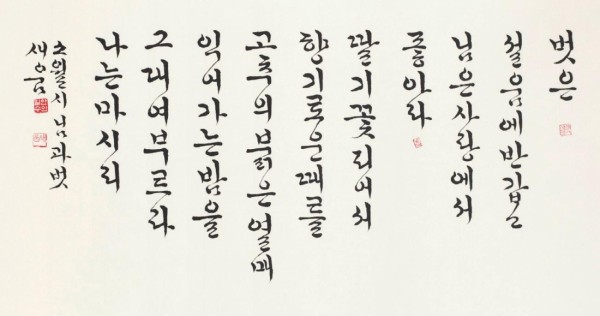 벗은
설움에 반갑고
님은 사랑에서
좋아라
딸기꽃 피어서
향기로운 때를
고추의 붉은 열매
익어가는 밤을
그대여 부르라
나는 마시리
소월시 님과벗
새움